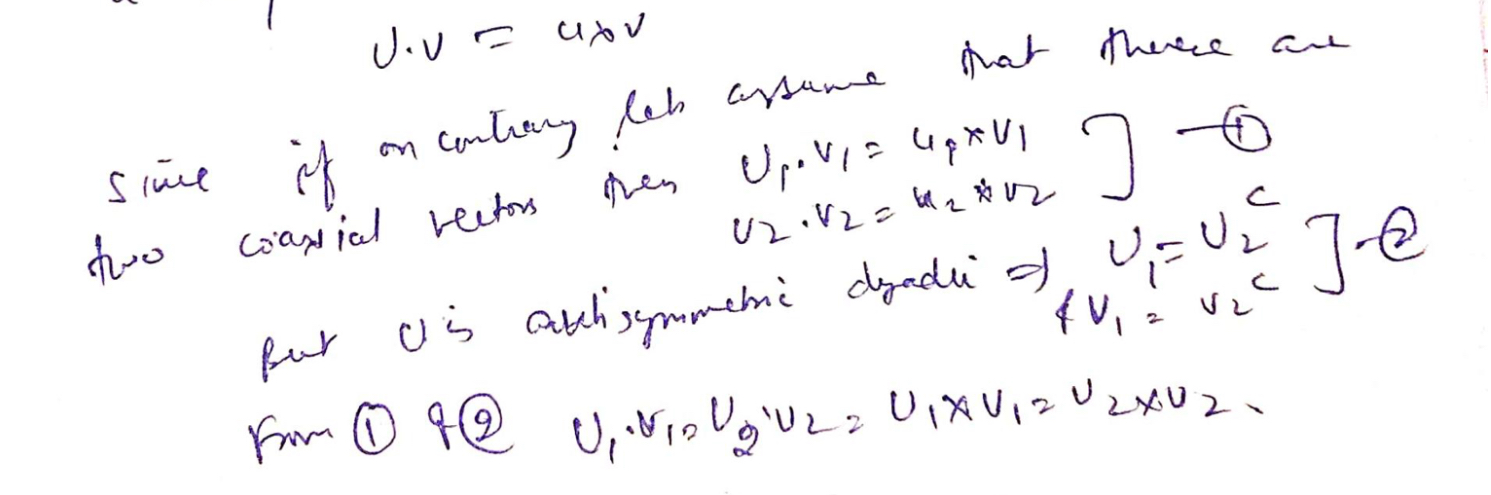 U.V = u×v
Since if on contrary lets assume that there are
two coaxial vectors then U1.V1 = u1×V1 ] — ①
U2.V2 = u2×V2
But U is antisymmetric dyadic ⇒ U1 = U2^c ] - ②
& V1 = V2^c
From ① & ② U1.V1 = U2.U2 = U1×V1 = U2×U2.